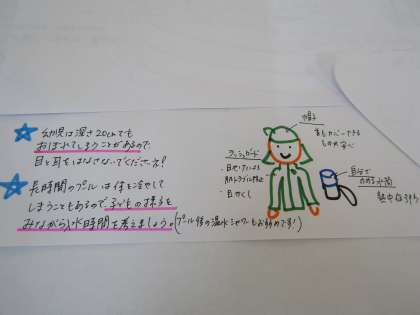 幼児は深さ20cmでも
おぼれてしまうことがあるので
目と耳をはなさないでくださいネ!
長時間のプールは体を冷やして
しまうこともあるので子どもの様子を
みながら入水時間を考えましょう。(プール後の温水シャワーもおすすめです!)
帽子
首もカバーできる
ラッシュガード
・日やけによる
肌トラブル防止
自分で
のめる水筒
熱中症